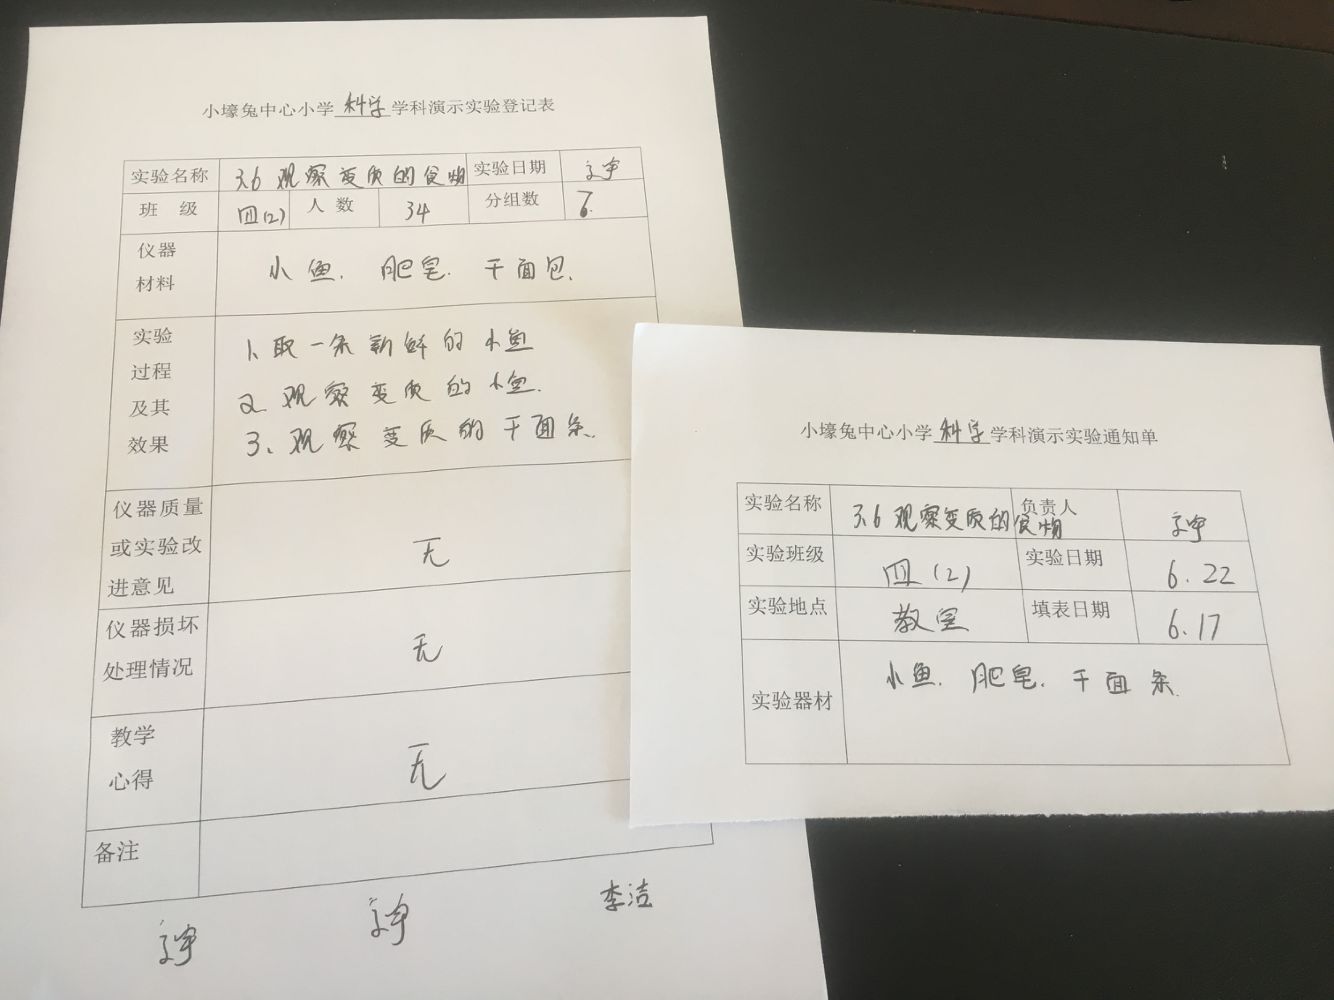 小壕兔中心小学 科学 学科演示实验登记表
实验名称 3.6 观察变质的食物 实验日期
班 级 四(2) 人 数 34 分组数 6.
仪器
材料
小鱼. 肥皂. 干面包.
实验
过程
及其
效果
1、取一条新鲜的小鱼
2、观察变质的小鱼.
3、观察变质的干面条.
仪器质量
或实验改
进意见
无
仪器损坏
处理情况
无
教学
心得
无
备注
李洁
小壕兔中心小学 科学 学科演示实验通知单
实验名称 3.6 观察变质的食物 负责人
实验班级 四(2) 实验日期 6.22
实验地点 教室 填表日期 6.17
实验器材 小鱼. 肥皂. 干面条.